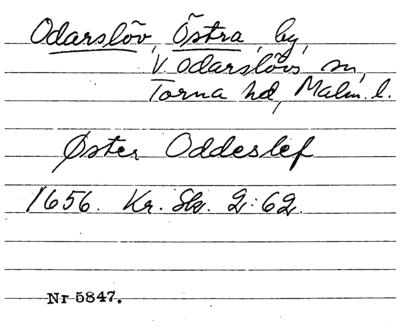 Odarslöv, Östra, by,
V. Odarslövs sn,
Torna hd, Malm. l.
Øster Oddeslef
1656. Kr. Sk. 2:62.
Nr 5847.